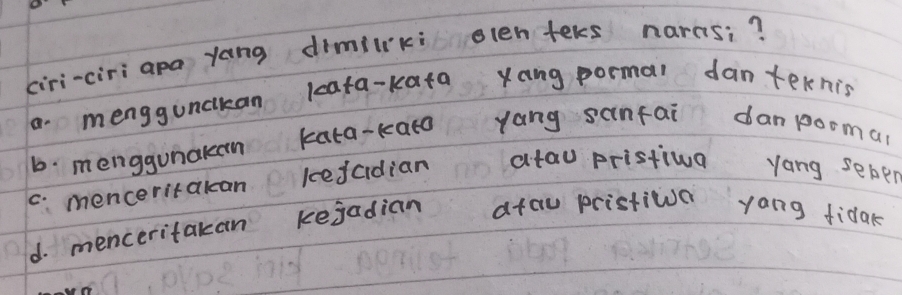 ciri-ciri apa yang dimiliki oleh teks narasi?
a. menggunakan kata-kata yang pormal dan teknis
b. menggunakan kata-kata yang santai dan pormal
c. menceritakan kejadian atau pristiwa yang seben
d. menceritakan kejadian atau pristiwa yang tidak